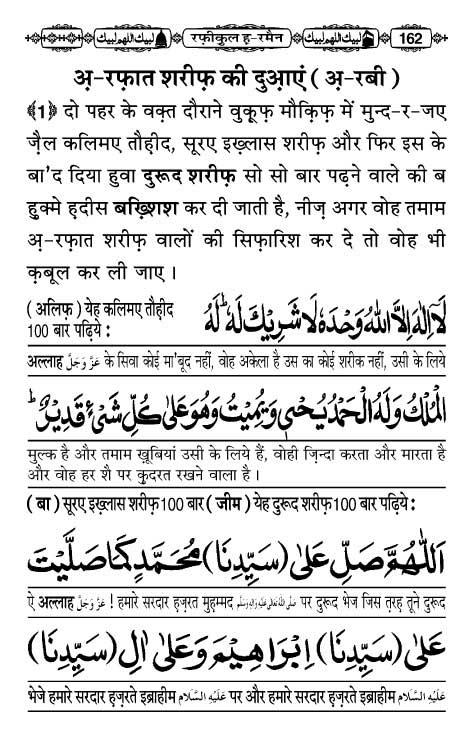 لبيك اللهم لبيك لبيك اللهم لبيك रफ़ीकुल ह-रमैन لبيك اللهم لبيك 162
अ़-रफ़ात शरीफ़ की दुआ़एं ( अ़-रबी )
《1》 दो पहर के वक़्त दौराने वुकूफ़ मौक़िफ़ में मुन्द-र-जए
ज़ैल कलिमए तौह़ीद, सूरए इख़्लास शरीफ़ और फिर इस के
बा'द दिया हुवा दुरूद शरीफ़ सो सो बार पढ़ने वाले की ब
हुक्मे ह़दीस बख़्शिश कर दी जाती है, नीज़ अगर वोह तमाम
अ़-रफ़ात शरीफ़ वालों की सिफ़ारिश कर दे तो वोह भी
क़बूल कर ली जाए ।
( अलिफ़ ) येह कलिमए तौह़ीद
100 बार पढ़िये :
لَا اِلٰهَ اِلَّا اللّٰهُ وَحْدَهٗ لَا شَرِيْكَ لَهٗ ؕ لَهُ
अल्लाह عَزَّ وَجَلَّ के सिवा कोई मा'बूद नहीं, वोह अकेला है उस का कोई शरीक नहीं, उसी के लिये
الْمُلْكُ وَلَهُ الْحَمْدُ يُحْيِيْ وَيُمِيْتُ وَهُوَ عَلٰى كُلِّ شَيْءٍ قَدِيْرٌ ؕ
मुल्क है और तमाम ख़ूबियां उसी के लिये हैं, वोही ज़िन्दा करता और मारता है
और वोह हर शै पर क़ुदरत रखने वाला है ।
( बा ) सूरए इख़्लास शरीफ़ 100 बार ( जीम ) येह दुरूद शरीफ़ 100 बार पढ़िये :
اَللّٰهُمَّ صَلِّ عَلٰى (سَيِّدِنَا) مُحَمَّدٍ كَمَا صَلَّيْتَ
ऐ अल्लाह عَزَّ وَجَلَّ ! हमारे सरदार ह़ज़रत मुह़म्मद صلى الله تعالى عليه واله وسلم पर दुरूद भेज जिस त़रह़ तूने दुरूद
عَلٰى (سَيِّدِنَا) اِبْرَاهِيْمَ وَعَلٰى اٰلِ (سَيِّدِنَا)
भेजे हमारे सरदार ह़ज़रते इब्राहीम عَلَيْهِ السَّلَام पर और हमारे सरदार ह़ज़रते इब्राहीम عَلَيْهِ السَّلَام